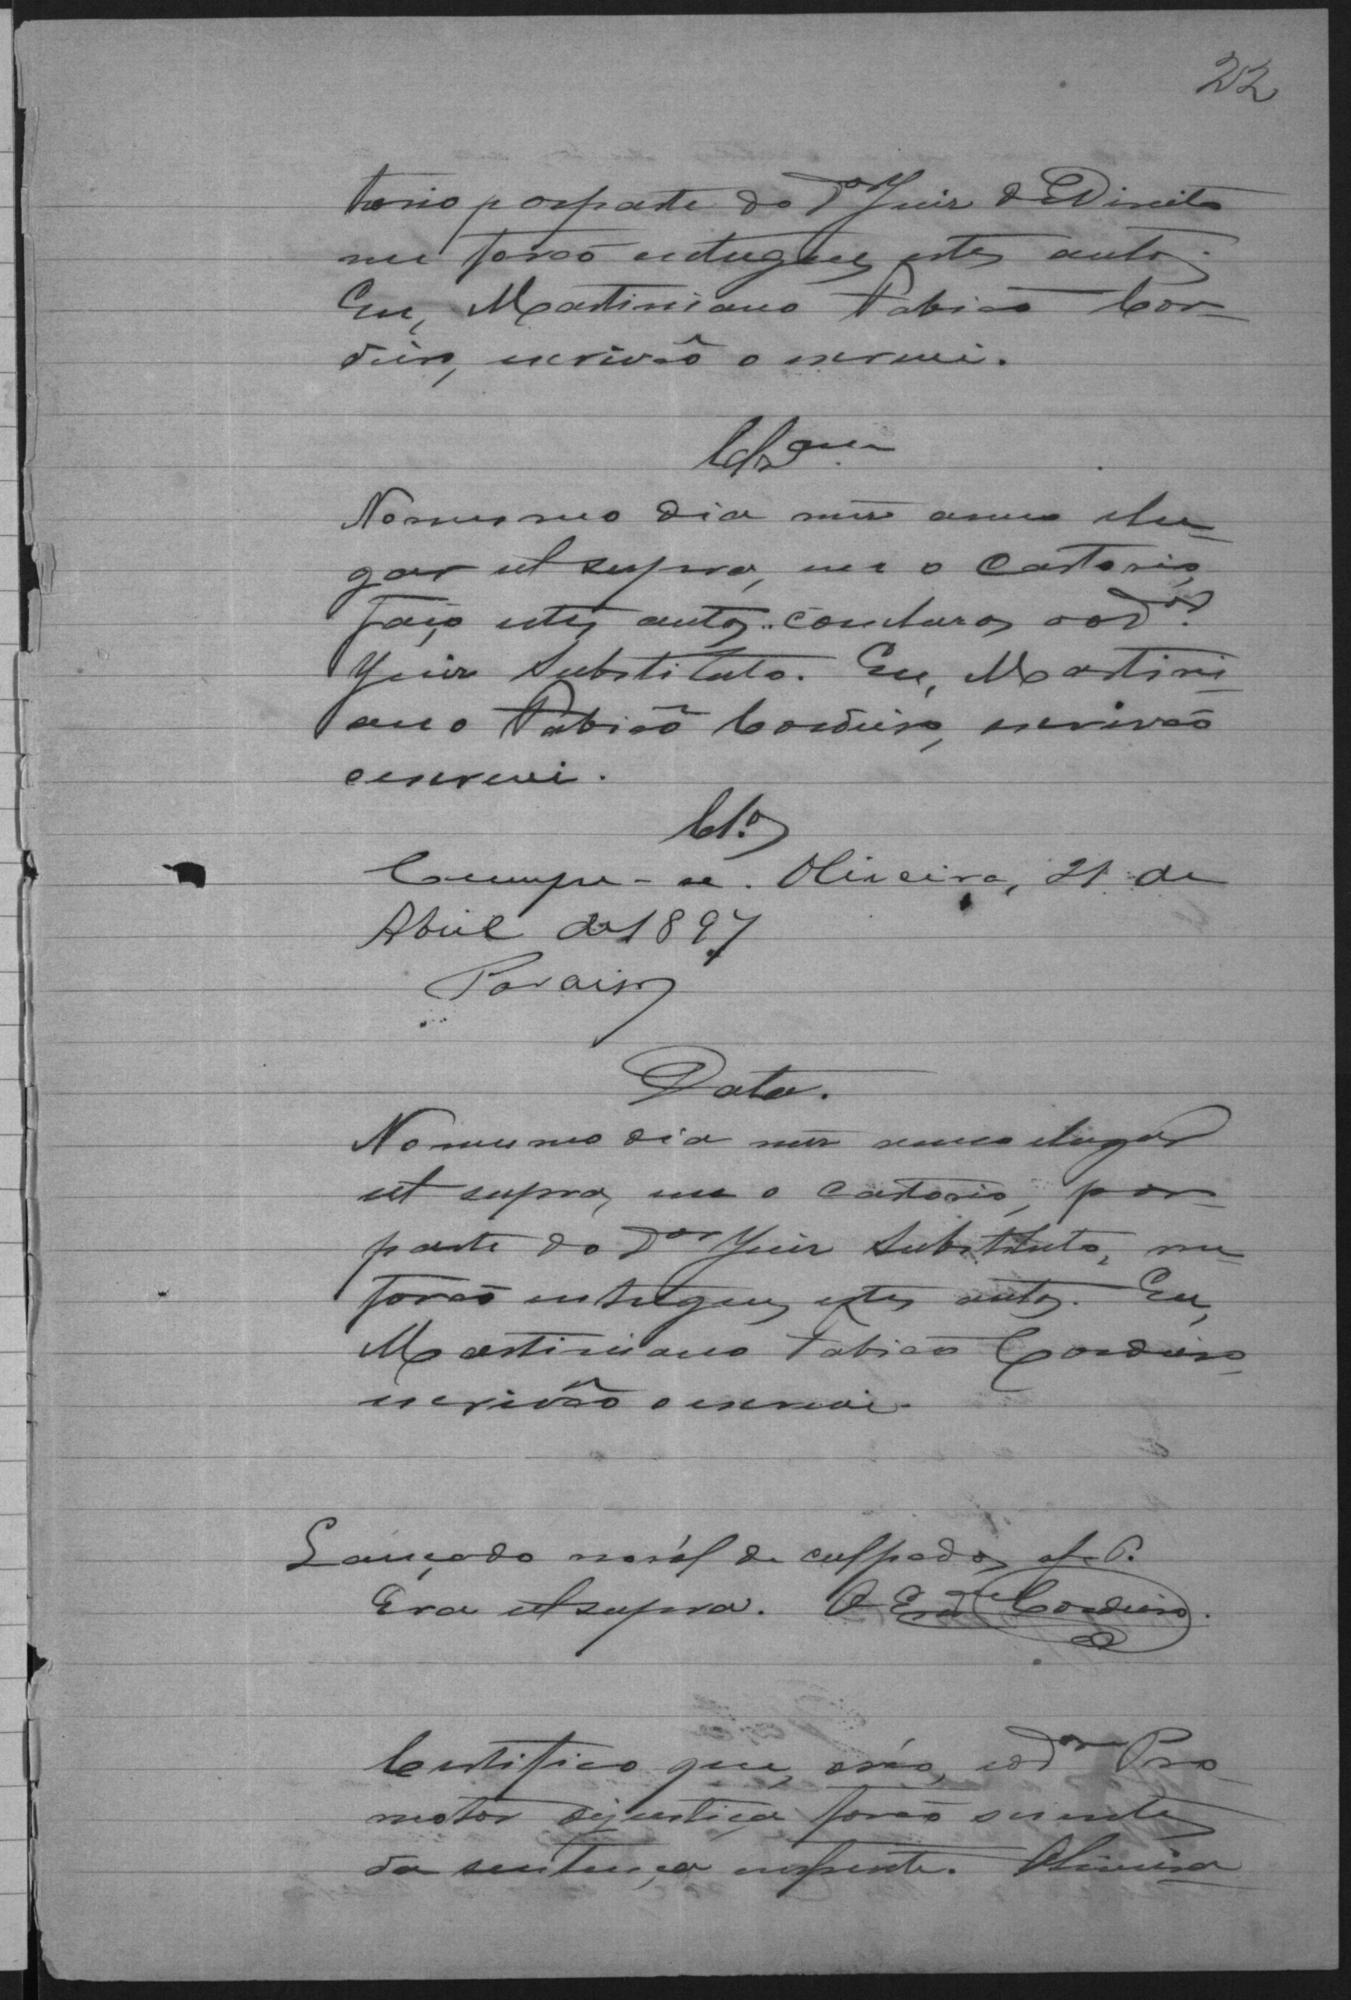 22
torio por parte do Dor Juiz de Direito
me forão entregues estes autos.
Eu, Martiniano Fabião Cor-
deiro, escrivão o escrevi.
Clzam
No mesmo dia mez anno e lu-
gar ut supra, em o cartorio,
faço estes autos conclusos ao Dor
Juiz Substituto. Eu, Martini-
ano Fabião Cordeiro, escrivão
o escrevi.
Clos
Cumpra-se. Oliveira, 21 de
Abril de 1897
Paraiso
Data.
No mesmo dia mez anno e lugar
ut supra, em o cartorio, por
parte do Dor Juiz Substituto, me
forão entregues estes autos. Eu,
Martiniano Fabião Cordeiro,
escrivão o escrevi.
Lançado no rol de culpados, a f.
Era ut supra. O Escam Cordeiro.
Certifico que, o réo, e o Dor Pro-
motor de justiça forão scientes
da sentença em frente. Oliveira